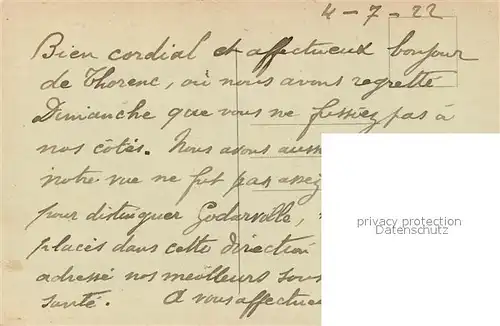 4-7-22
Bien cordial et affectueux bonjour
de Thorenc, où nous avons regretté
Dimanche que vous ne fussiez pas à
nos côtés. Nous avons aussi
notre vue ne fut pas assez
pour distinguer Godarville,
placés dans cette direction
adressé nos meilleurs sou
santé. A vous affectue
privacy protection
Datenschutz